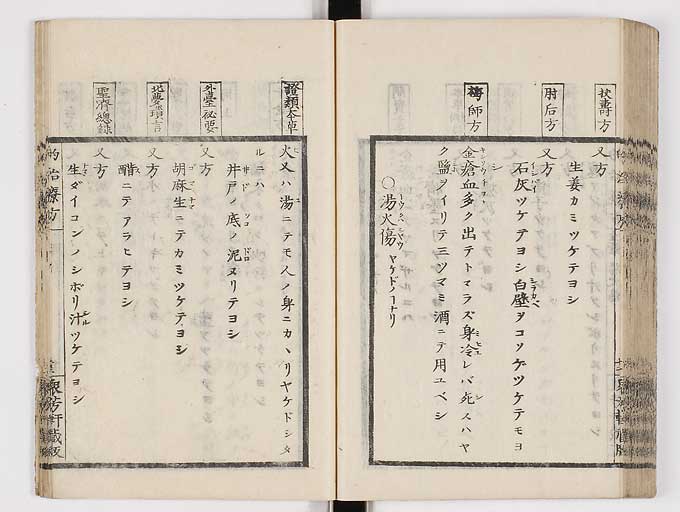 扶壽方
又方
生姜カミツケテヨシ
肘后方
又方
石灰ツケテヨシ白壁ヲコソゲツケテモヨシ
梅師方
金瘡血多ク出テトマラズ身冷レバ死スハヤ
ク鹽ヲイリテ三ツマミ酒ニテ用ユベシ
○湯火傷 ヤケドノコトナリ
證類本草
火又ハ湯ニテモ人ノ身ニカヽリヤケドシタ
ルニハ
井戸ノ底ノ泥ヌリテヨシ
外臺秘要
又方
胡麻生ニテカミツケテヨシ
北夢瑣言
又方
醋ニテアラヒテヨシ
聖濟總録
又方
生ダイコンノシボリ汁ツケテヨシ